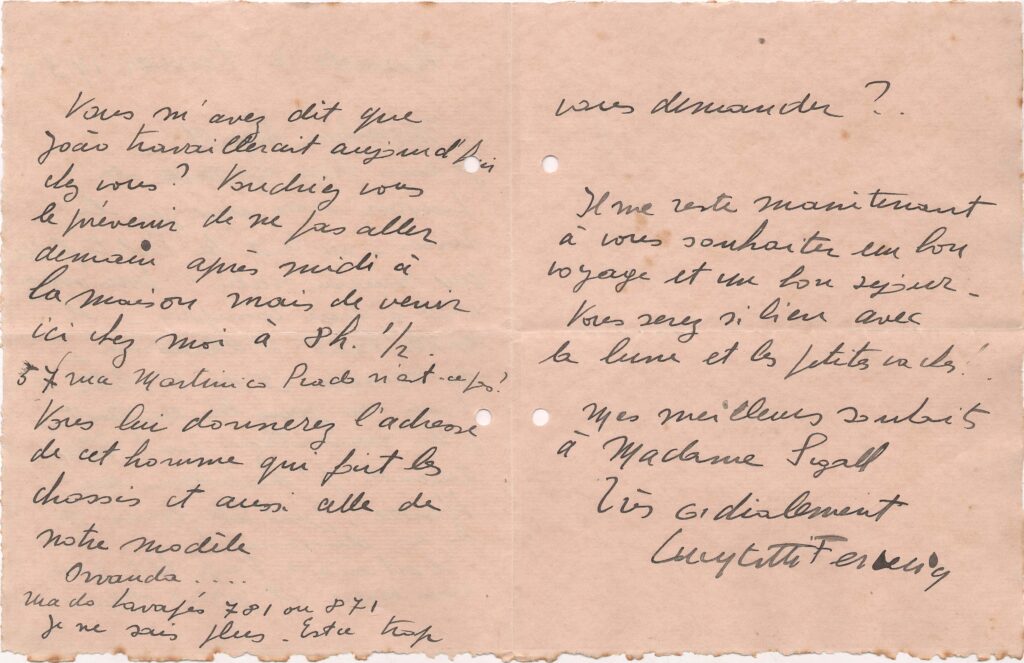 Vous m'avez dit que
João travaillerait aujourd'hui
chez vous? Voudriez vous
le prévenir de ne pas aller
demain après midi à
la maison mais de venir
ici chez moi à 8h. 1/2.
57 rua Martinico Prado n'est-ce pas?
Vous lui donnerez l'adresse
de cet homme qui fait les
chassis et aussi celle de
notre modèle
....
781 ou 871
Je ne sais plus. Est ce trop
vous demander?.
Il me reste maintenant
à vous souhaiter un bon
voyage et un bon sejour.
Vous serez si bien avec
la lune et les petites vaches!
Mes meilleurs souhaits
à Madame Segall
Très cordialement